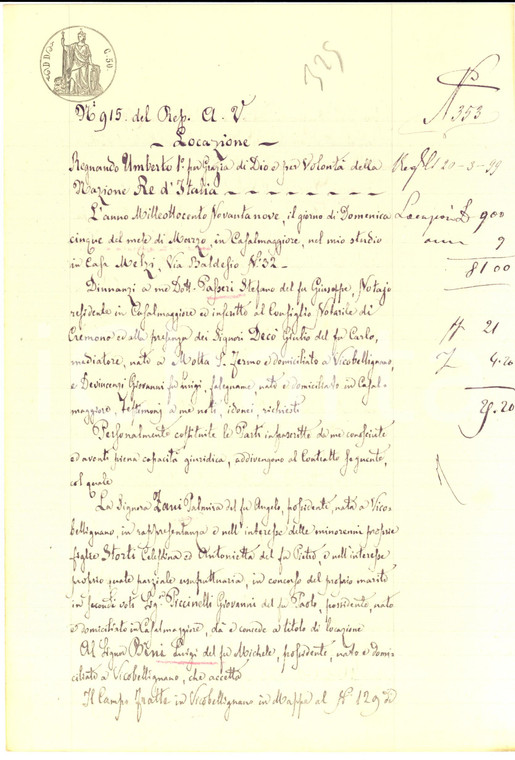 325
N° 915. del Rep. A. V.
N° 353
– Locazione –
Regnando Umberto 1° per Grazia di Dio e per Volontà della
Nazione Re d'Italia
20-3-99
L'anno Milleottocento Novantanove, il giorno di Domenica
900
cinque del mese di Marzo, in Casalmaggiore, nel mio studio
anni 9
in Casa Melzi, Via Baldesio N° 32 –
8100
Dinnanzi a me Dott. Passeri Stefano del fu Giuseppe, Notajo
residente in Casalmaggiore ed inscritto al Consiglio Notarile di
21
Cremona ed alla presenza dei Signori Decò Giulio del fu Carlo,
4.20
mediatore, nato a Motta S. Fermo e domiciliato a Vicobellignano,
25.20
e Devincenzi Giovanni fu Luigi, falegname, nato e domiciliato in Casal-
maggiore, testimonj a me noti, idonei, richiesti
Personalmente costituite le Parti infrascritte da me conosciute
ed aventi piena capacità giuridica, addivengono al Contratto seguente,
col quale
La Signora Zani Palmira del fu Angelo, possidente, nata a Vico-
bellignano, in rappresentanza e nell'interesse delle minorenni proprie
figlie Storti Celestina ed Antonietta del fu Pietro, e nell'interesse
proprio quale parziale usufruttuaria, in concorso del proprio marito
in secondi voti Sig. Piccinelli Giovanni del fu Paolo, possidente, nato
e domiciliato in Casalmaggiore, dà e concede a titolo di locazione
Al Signor Bini Luigi del fu Michele, possidente, nato e domi-
ciliato a Vicobellignano, che accetta
Il Campo Fratte in Vicobellignano in Mappa al N° 129